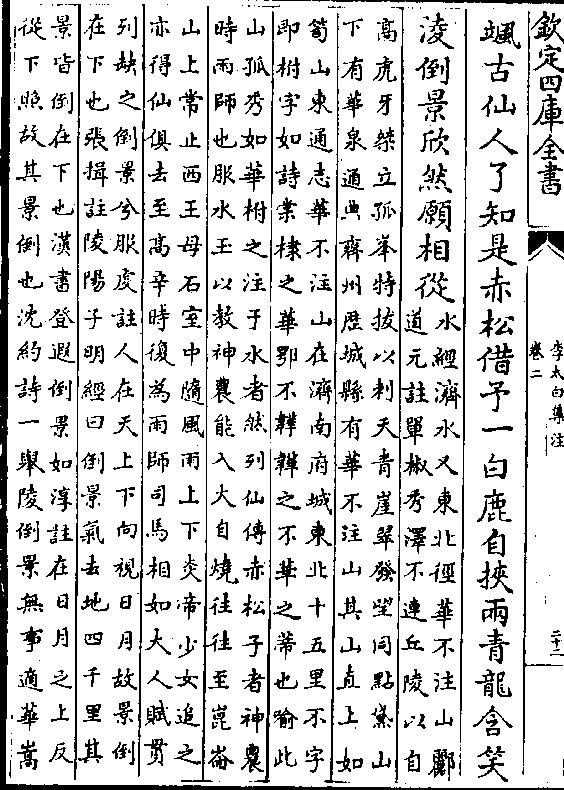 欽定四庫全書
李太白集注
卷二
二十二
颯古仙人了知是赤松借予一白鹿自挾兩青龍含笑
凌倒景欣然願相從
水經濟水又東北徑華不注山酈
道元註單椒秀澤不連丘陵以自
高虎牙桀立孤峯特拔以刺天青崖翠發望同點黛山
下有華泉通典齊州歴城縣有華不注山其山直上如
筍山東通志華不注山在濟南府城東北十五里不字
即柎字如詩棠棣之華鄂不韡韡之不華之蒂也喻此
山孤秀如華柎之注于水者然列仙傳赤松子者神農
時雨師也服水玉以教神農能入火自燒往往至崑崙
山上常止西王母石室中隨風雨上下炎帝少女追之
亦得仙俱去至高辛時復為雨師司馬相如大人賦貫
列缺之倒景兮服虔註人在天上下向視日月故景倒
在下也張揖註陵陽子明經曰倒景氣去地四千里其
景皆倒在下也漢書登遐倒景如淳註在日月之上反
從下照故其景倒也沈約詩一舉陵倒景無事適華嵩